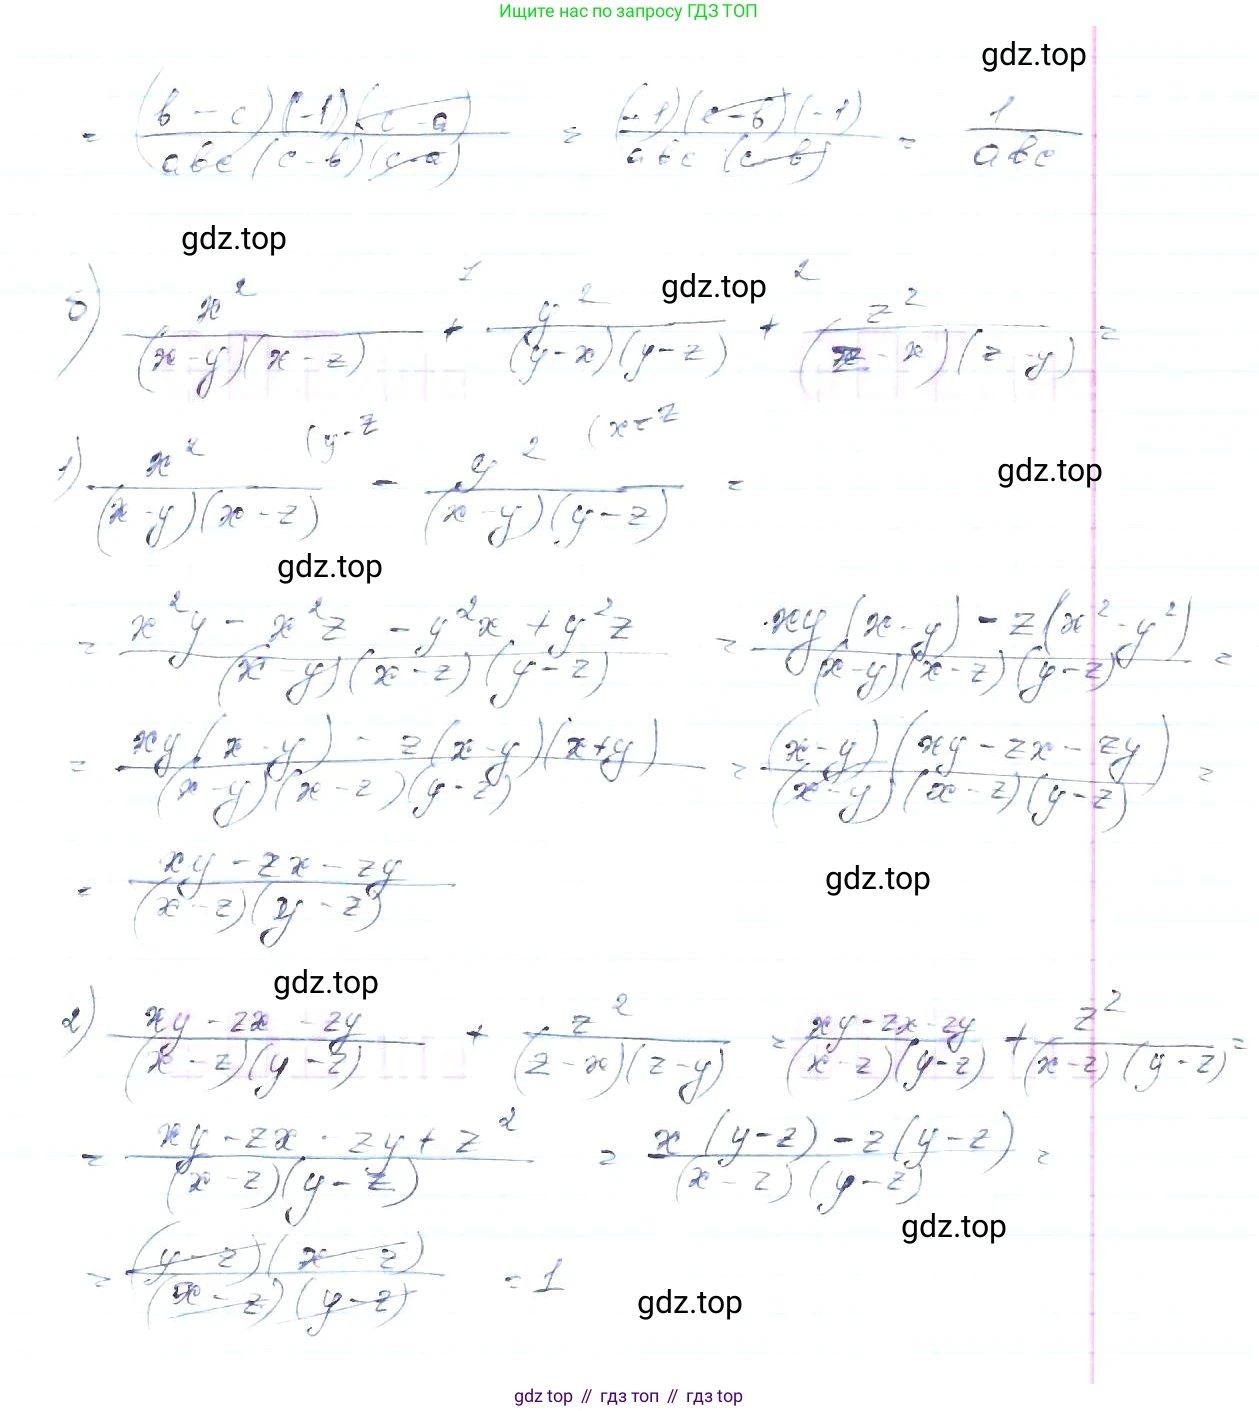 Ищите нас по запросу ГДЗ ТОП
gdz.top
= (b - c)(-1)(c - a) / abc(c - b)(c - a) = (-1)(c - b)(-1) / abc(c - b) = 1 / abc
gdz.top
б) x² / (x - y)(x - z) +¹ y² / (y - x)(y - z) +² z² / (z - x)(z - y) =
gdz.top
1) x² (y - z / (x - y)(x - z) - y² (x - z / (x - y)(y - z) =
gdz.top
gdz.top
= x²y - x²z - y²x + y²z / (x - y)(x - z)(y - z) = xy(x - y) - z(x² - y²) / (x - y)(x - z)(y - z) =
= xy(x - y) - z(x - y)(x + y) / (x - y)(x - z)(y - z) = (x - y)(xy - zx - zy) / (x - y)(x - z)(y - z) =
= xy - zx - zy / (x - z)(y - z)
gdz.top
gdz.top
2) xy - zx - zy / (x - z)(y - z) + z² / (z - x)(z - y) = xy - zx - zy / (x - z)(y - z) + z² / (x - z)(y - z) =
= xy - zx - zy + z² / (x - z)(y - z) = x(y - z) - z(y - z) / (x - z)(y - z) =
gdz.top
= (y - z)(x - z) / (x - z)(y - z) = 1
gdz.top
gdz top // гдз топ // gdz top